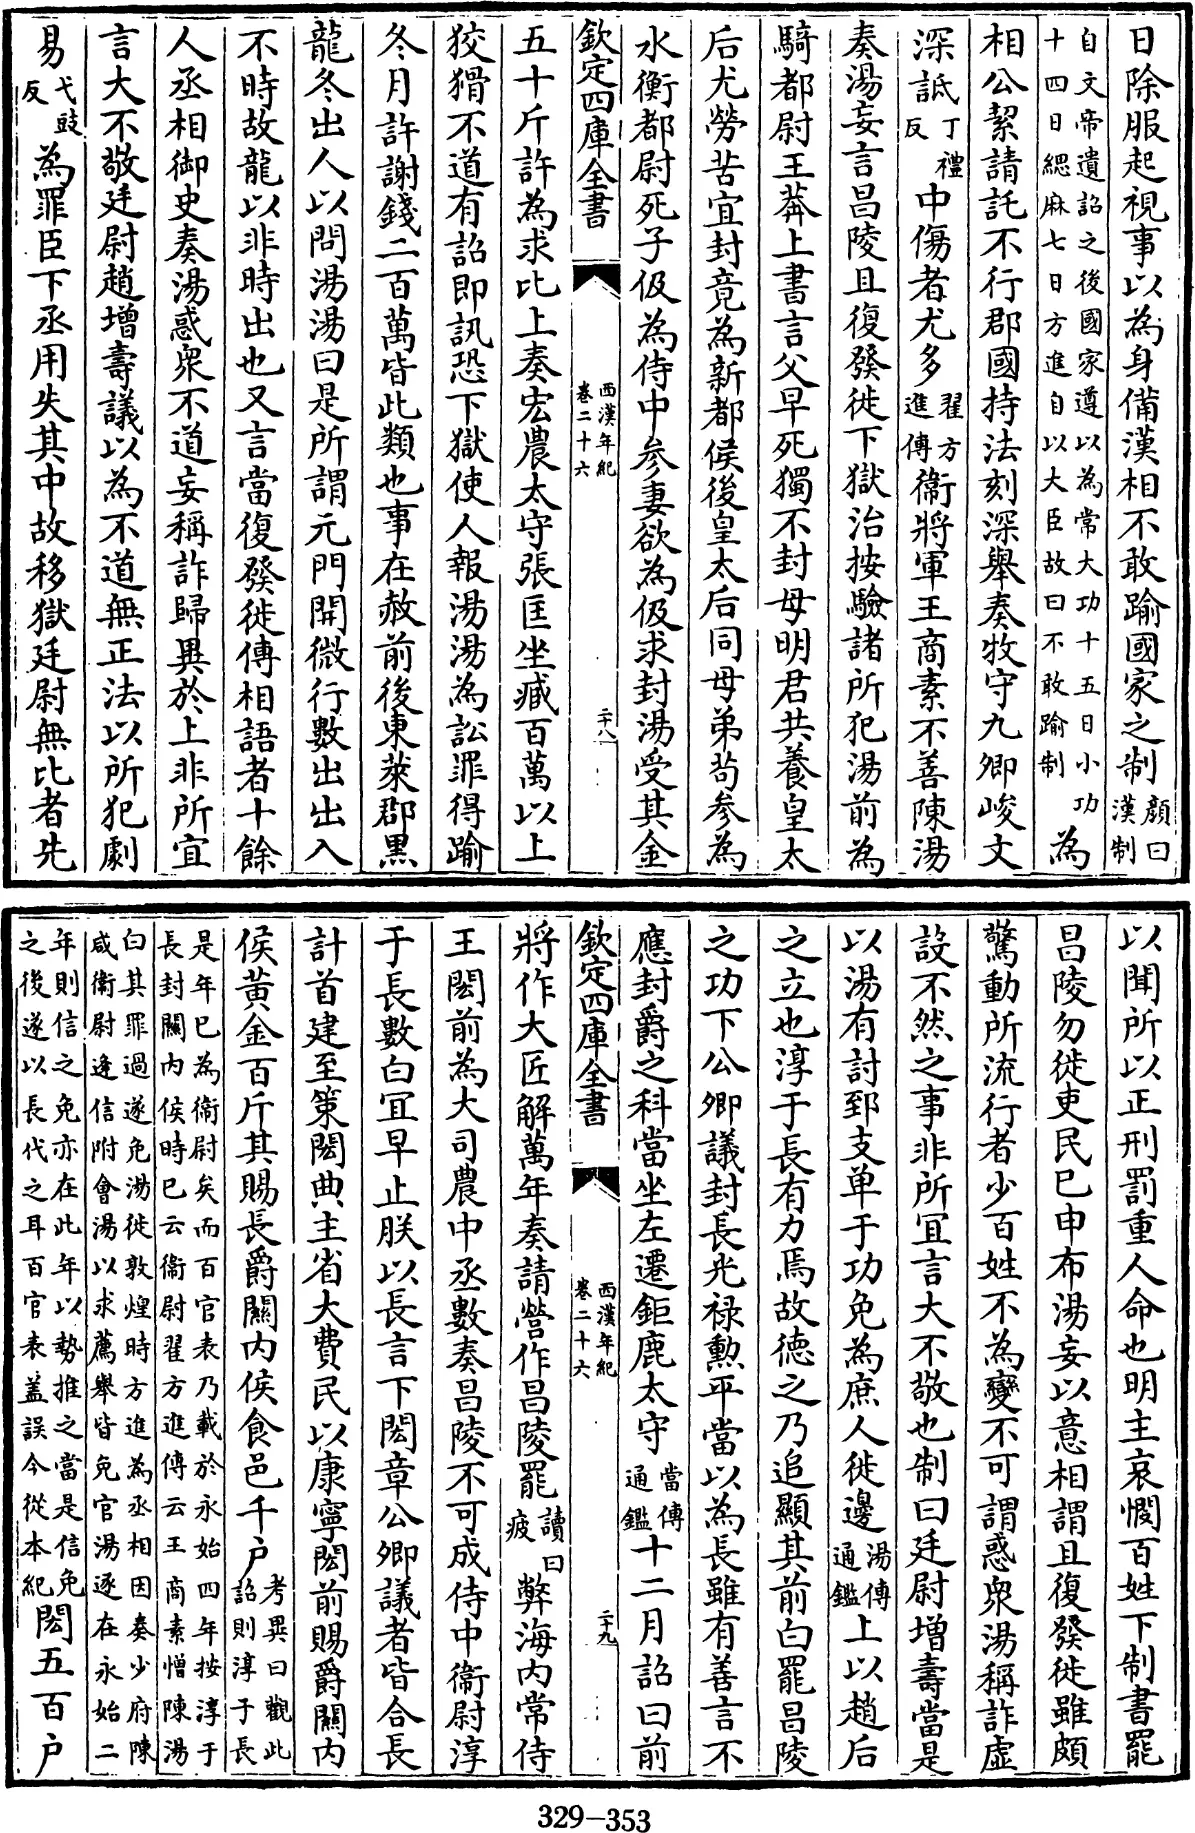 日除服起視事以為身備漢相不敢踰國家之制顔曰漢制
自文帝遺詔之後國家遵以為常大功十五日小功十四日緦麻七日方進自以大臣故曰不敢踰制為
相公絜請託不行郡國持法刻深舉奏牧守九卿峻文
深詆丁禮反中傷者尤多翟方進傳衞將軍王商素不善陳湯
奏湯妄言昌陵且復發徙下獄治按驗諸所犯湯前為
騎都尉王莽上書言父早死獨不封母明君共養皇太
后尤勞苦宜封竟為新都侯後皇太后同母弟茍參為
水衡都尉死子伋為侍中參妻欲為伋求封湯受其金
欽定四庫全書 西漢年紀卷二十六 二十八
五十斤許為求比上奏宏農太守張匡坐臧百萬以上
狡猾不道有詔即訊恐下獄使人報湯湯為訟罪得踰
冬月許謝錢二百萬皆此類也事在赦前後東萊郡黑
龍冬出人以問湯湯曰是所謂元門開微行數出出入
不時故龍以非時出也又言當復發徙傳相語者十餘
人丞相御史奏湯惑衆不道妄稱詐歸異於上非所宜
言大不敬廷尉趙增壽議以為不道無正法以所犯劇
易弋豉反為罪臣下丞用失其中故移獄廷尉無比者先
以聞所以正刑罰重人命也明主哀憫百姓下制書罷
昌陵勿徙吏民已申布湯妄以意相謂且復發徙雖頗
驚動所流行者少百姓不為變不可謂惑衆湯稱詐虛
設不然之事非所宜言大不敬也制曰廷尉增壽當是
以湯有討郅支单于功免為庶人徙邊湯傳通鑑上以趙后
之立也淳于長有力焉故德之乃追顯其前白罷昌陵
之功下公卿議封長光禄勲平當以為長雖有善言不
應封爵之科當坐左遷鉅鹿太守當傳通鑑十二月詔曰前
欽定四庫全書 西漢年紀卷二十六 二十九
將作大匠解萬年奏請營作昌陵罷讀曰疲弊海内常侍
王閎前為大司農中丞數奏昌陵不可成侍中衞尉淳
于長數白宜早止朕以長言下閎章公卿議者皆合長
計首建至策閎典主省大費民以康寧閎前賜爵關内
侯黃金百斤其賜長爵關内侯食邑千户考異曰觀此詔則淳于長
是年已為衞尉矣而百官表乃載於永始四年按淳于長封關内侯時已云衞尉翟方進傳云王商素憎陳湯
白其罪過遂免湯徙敦煌時方進為丞相因奏少府陳咸衞尉逄信附會湯以求薦舉皆免官湯逐在永始二
年則信之免亦在此年以勢推之當是信免之後遂以長代之耳百官表盖誤今從本紀閎五百户
329-353